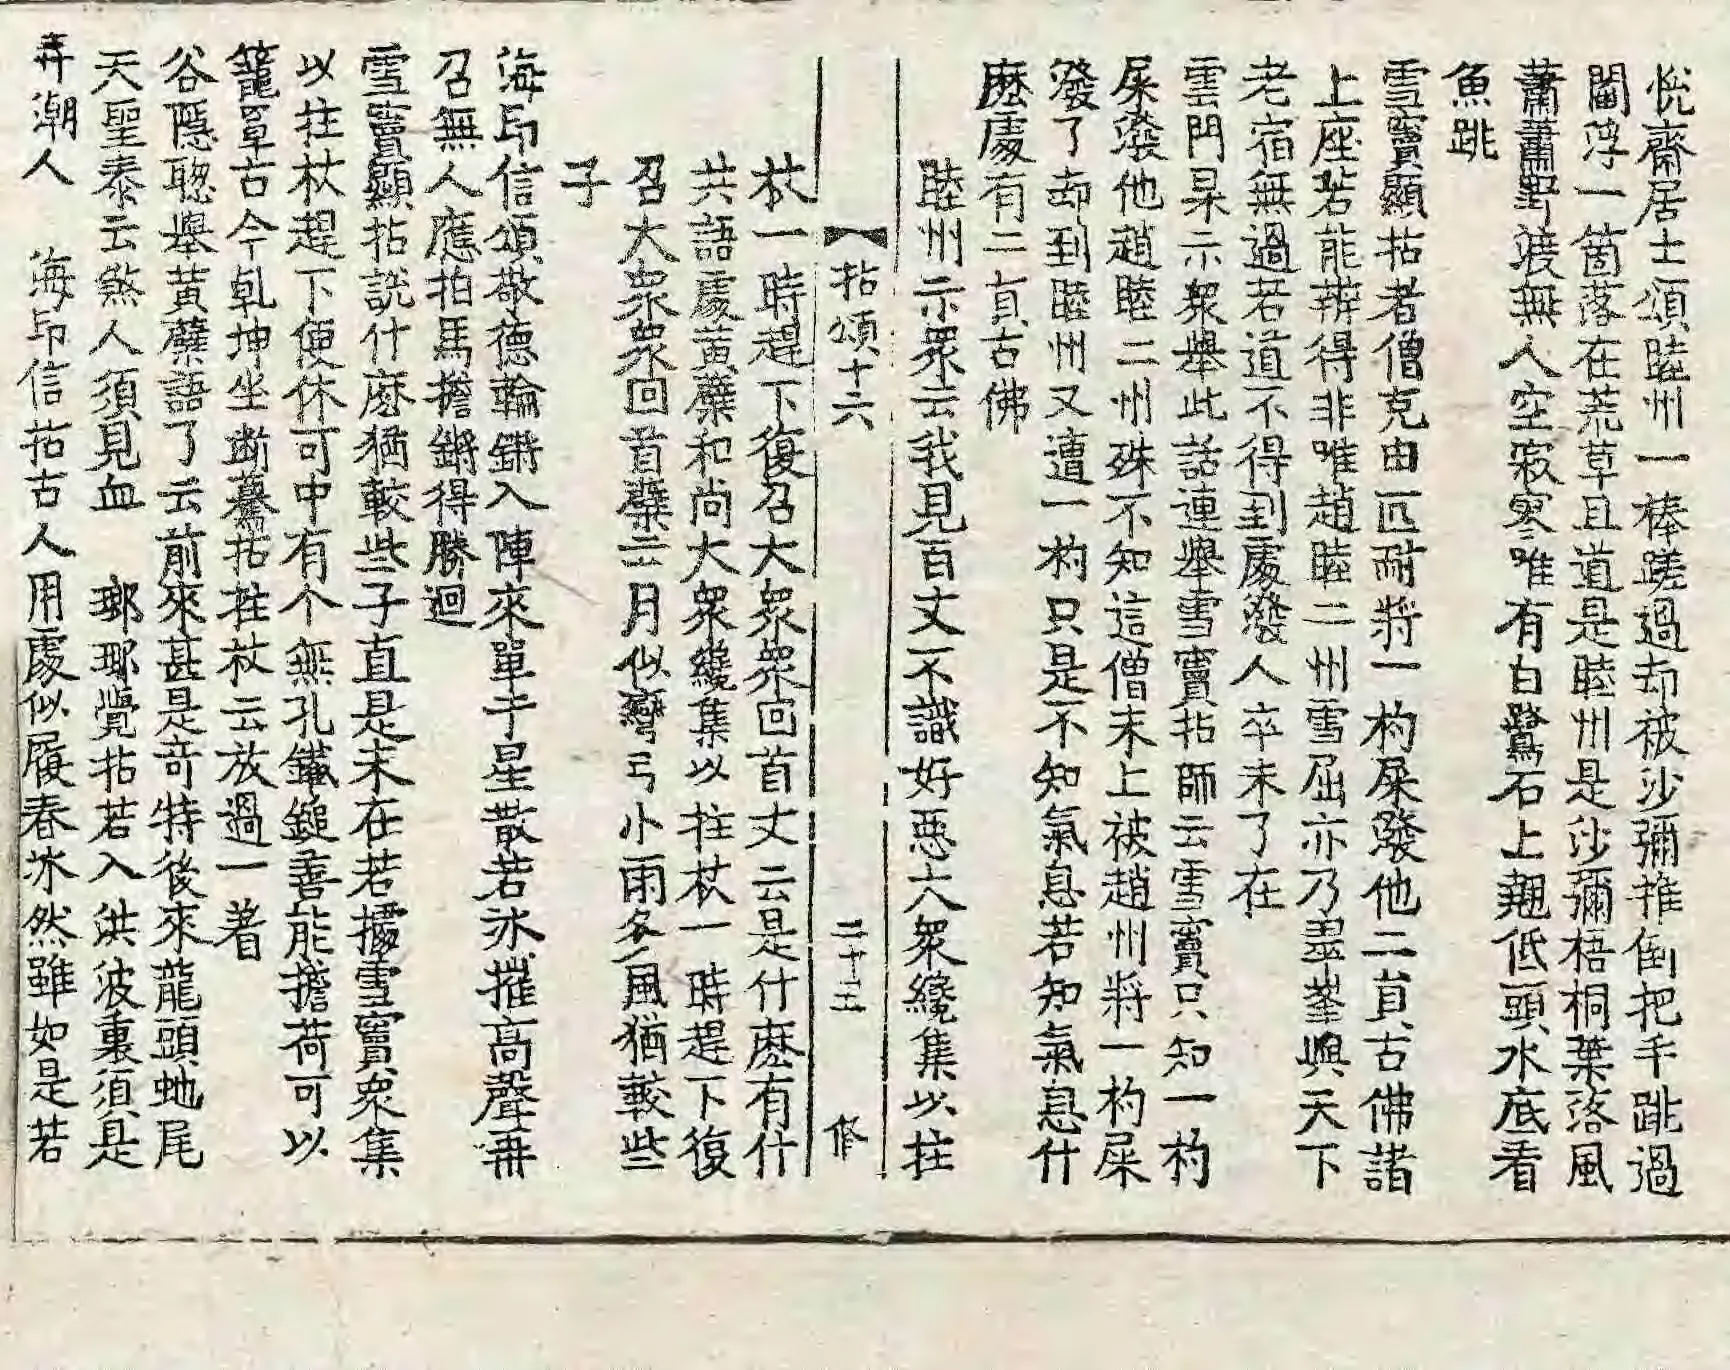 悅齋居士頌睦州一棒蹉過却被沙彌推倒把手跳過
閫浮一箇落在荒草且道是睦州是沙彌梧桐葉落風
蕭蕭野渡無人空寂寒唯有白鷺石上翹低頭水底看
魚跳
雪竇顯拈者僧克由叵耐將一杓屎潑他二員古佛諸
上座若能辨得非唯趙睦二州雪屈亦乃盡莑與天下
老宿無過若道不得到處潑人卒未了在
雲門杲示衆舉此話連舉雪竇拈師云雪竇只知一杓
屎潑他趙睦二州殊不知這僧末上被趙州將一杓屎
潑了却到睦州又遭一杓只是不知氣息若知氣息什
麽處有二員古佛
睦州示衆云我見百丈不識好惡大衆纔集以拄
拈頌十六 二十五 修
杖一時趕下復召大衆衆回首丈云是什麽有什
共語處黃蘗和尚大衆纔集以拄杖一時趕下復
召大衆衆回首蘗云月似彎弓小雨多風猶較些
子
海印信頌敬德輪鏘入陣來單于星散若氷摧高聲再
召無人應拍馬擔鏘得勝迴
雪竇顯拈說什麽猶較些子直是未在若據雪竇衆集
以拄杖趕下便休可中有个無孔鐵鎚善能擔荷可以
籠罩古今乹坤坐斷驀拈拄杖云放過一著
谷隱聰舉黃蘗語了云前來甚是竒特後來龍頭虵尾
天聖泰云煞人須見血 瑯瑘覺拈若入洪波裏須是
弄潮人 海印信拈古人用處似履春氷然雖如是若